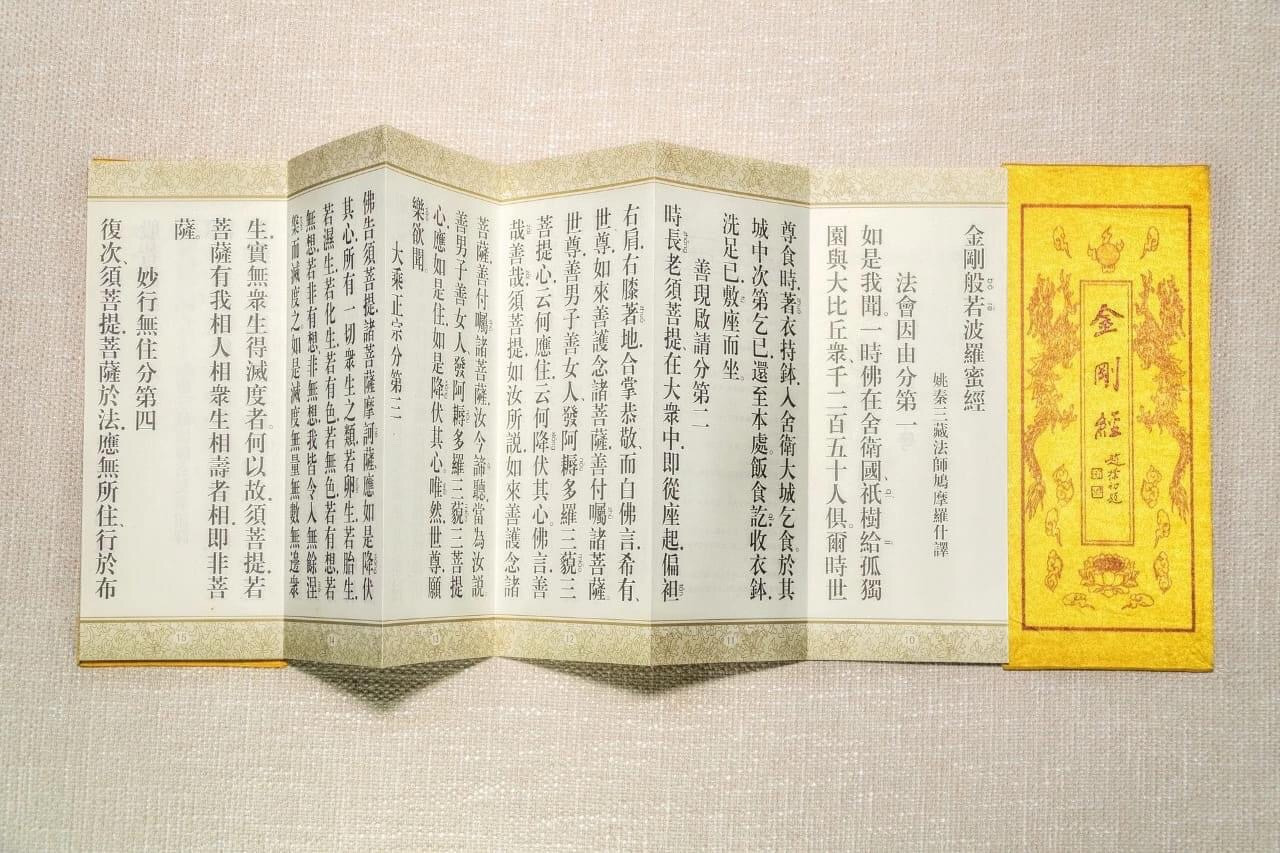 金剛經
趙樸初題
金剛般若波羅蜜經
姚秦三藏法師鳩摩羅什譯
法會因由分第一
如是我聞。一時佛在舍衛國、祇樹給孤獨
園與大比丘衆、千二百五十人俱。爾時世
10
尊食時、著衣持鉢、入舍衛大城乞食。於其
城中次第乞已、還至本處。飯食訖、收衣鉢、
洗足已、敷座而坐。
善現啟請分第二
時、長老須菩提、在大衆中、即從座起、偏袒
11
右肩、右膝著地、合掌恭敬、而白佛言、希有、
世尊、如來善護念諸菩薩、善付囑諸菩薩。
世尊、善男子善女人、發阿耨多羅三藐三
菩提心、云何應住、云何降伏其心。佛言、善
哉善哉。須菩提、如汝所說、如來善護念諸
12
菩薩、善付囑諸菩薩、汝今諦聽、當為汝說、
善男子善女人、發阿耨多羅三藐三菩提
心、應如是住、如是降伏其心。唯然、世尊、願
樂欲聞。
大乘正宗分第三
13
佛告須菩提、諸菩薩摩訶薩、應如是降伏
其心、所有一切衆生之類、若卵生、若胎生、
若濕生、若化生、若有色、若無色、若有想、若
無想、若非有想、非無想、我皆令入無餘涅
槃而滅度之。如是滅度無量無數無邊衆
14
生、實無衆生得滅度者。何以故、須菩提、若
菩薩有我相人相衆生相壽者相、即非菩
薩。
妙行無住分第四
復次、須菩提、菩薩於法、應無所住、行於布
15